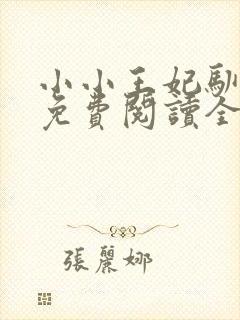 小小王妃馴
免費閱讀全
張麗娜